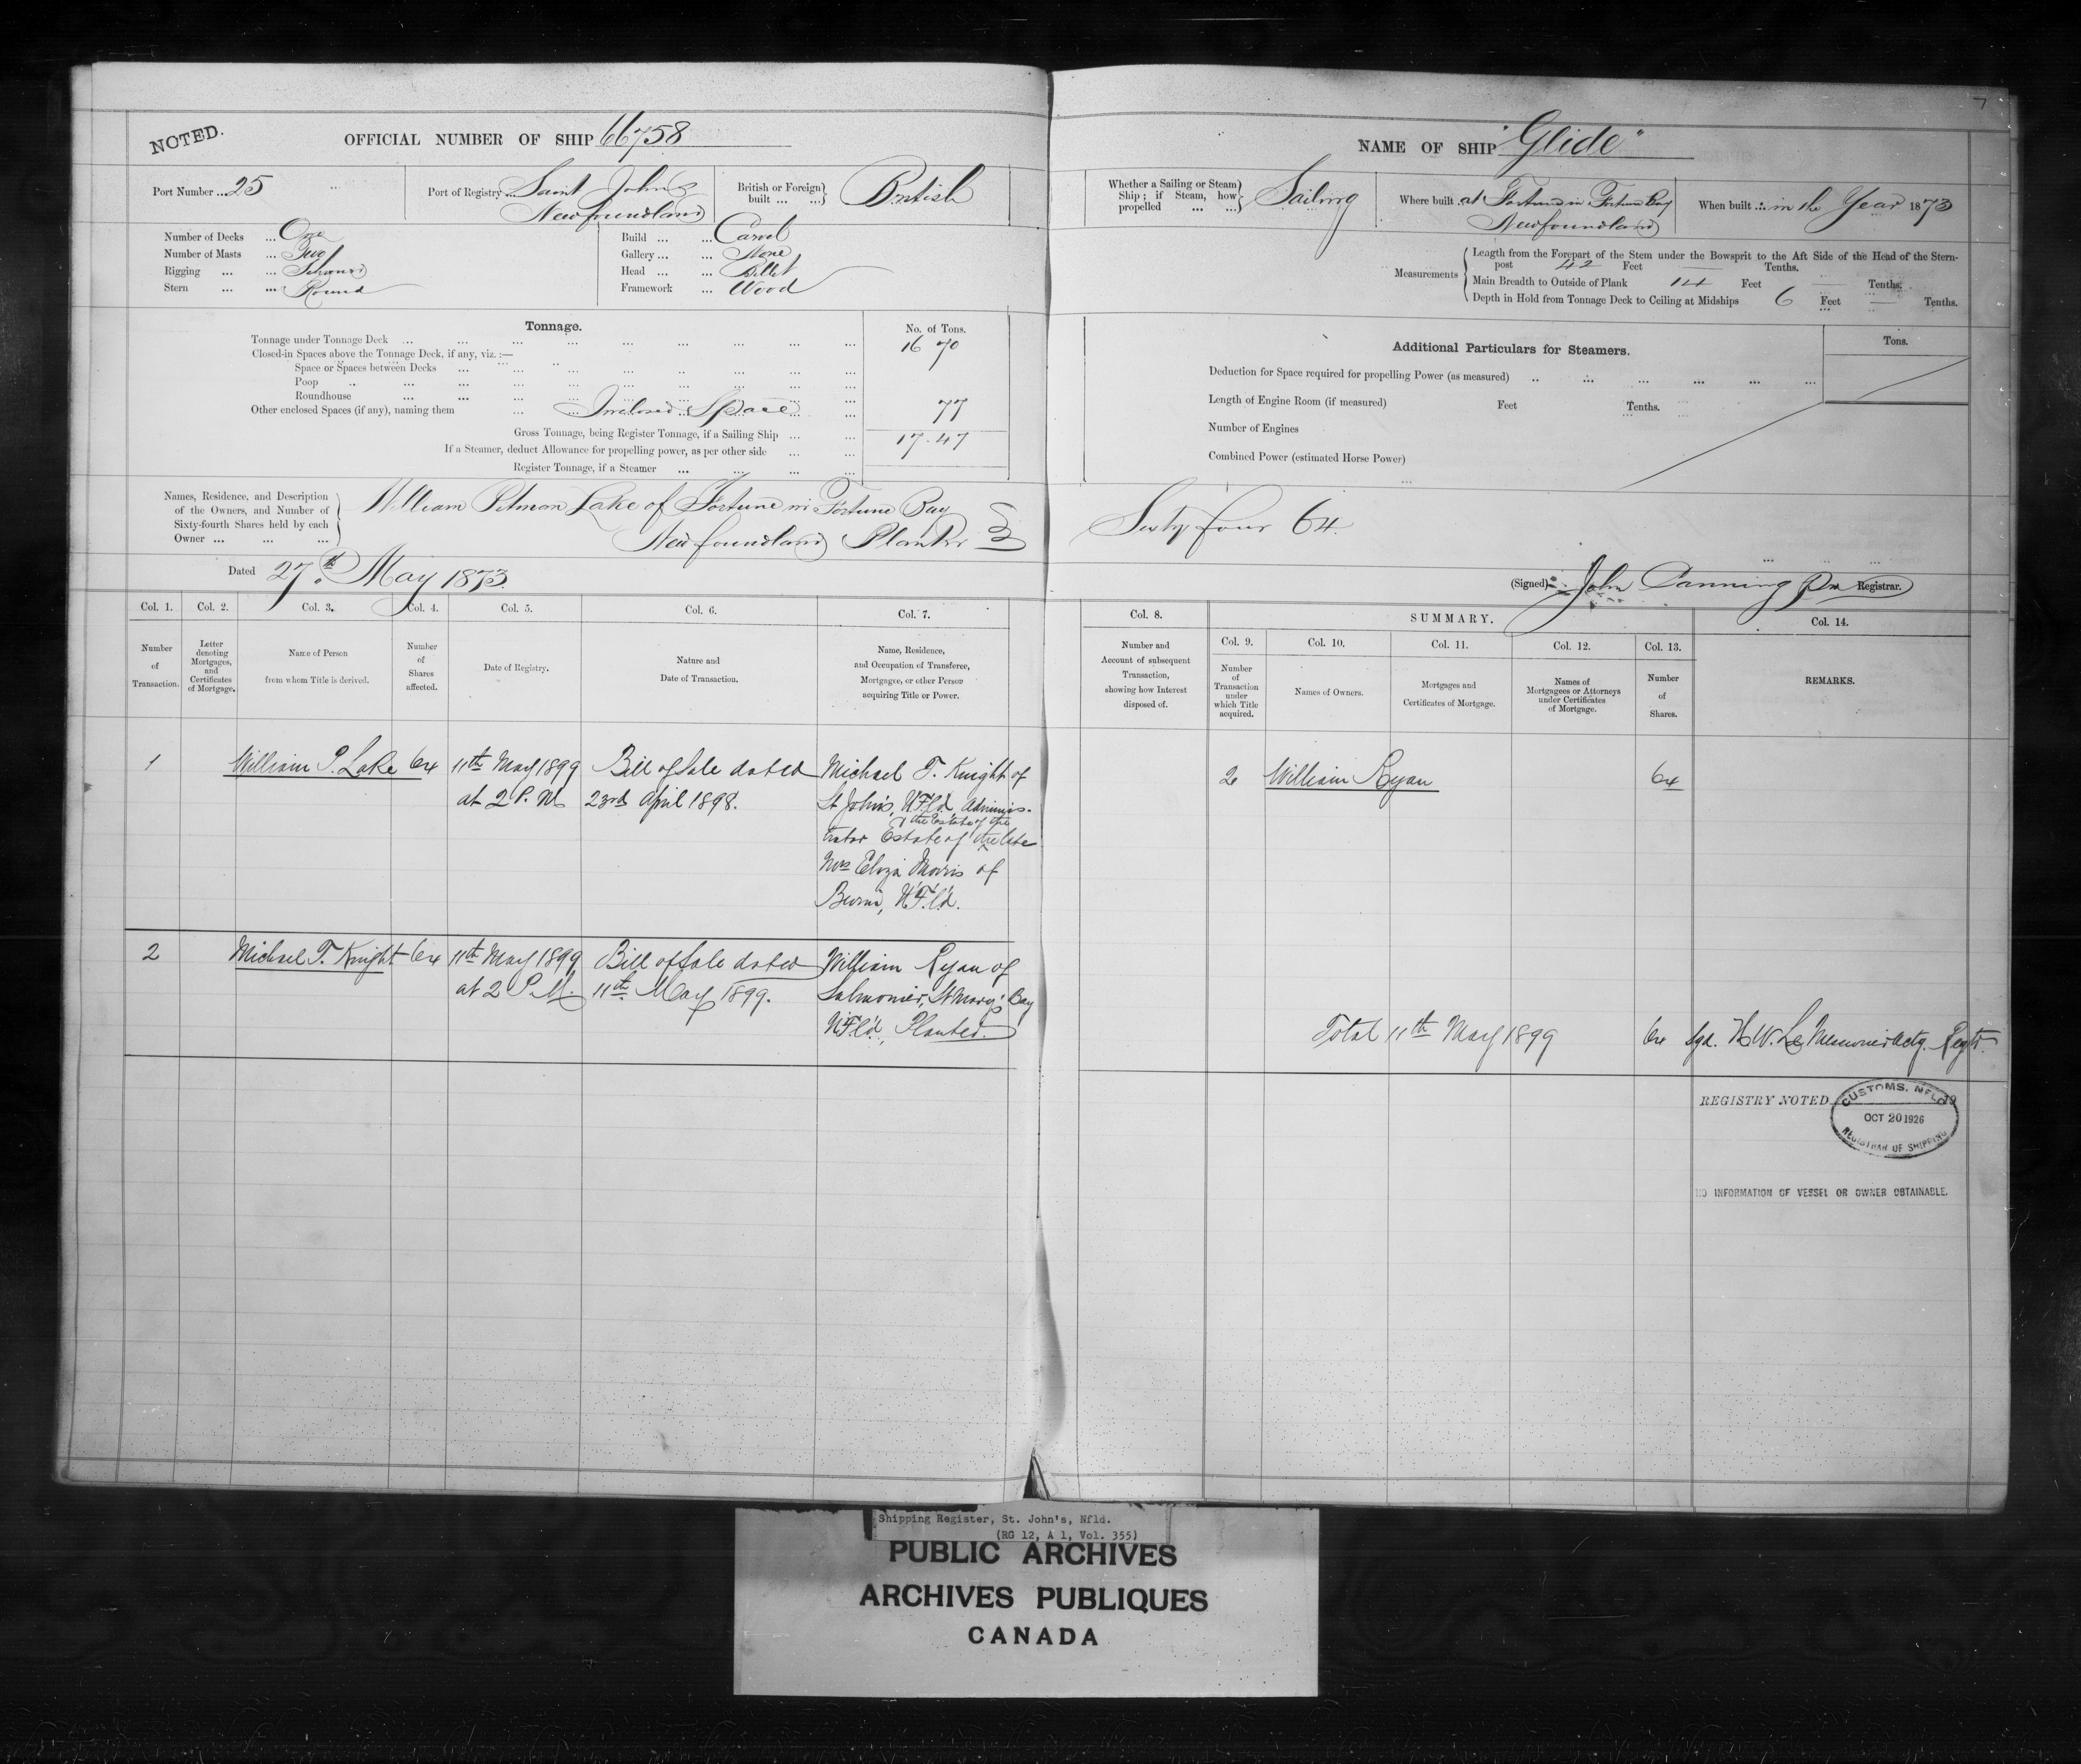 NOTED.
OFFICIAL NUMBER OF SHIP 66758
Port Number ... 25
Port of Registry ... Saint John's
Newfoundland
British or Foreign
built ... ...
British
Number of Decks ... One
Number of Masts ... Two
Rigging ... ... Schooner
Stern ... ... Round
Build ... ... Carvel
Gallery ... ... None
Head ... ... Billet
Framework ... Wood
Tonnage.
No. of Tons.
Tonnage under Tonnage Deck ... 16 70
Closed-in Spaces above the Tonnage Deck, if any, viz. :—
Space or Spaces between Decks
Poop
Roundhouse
Other enclosed Spaces (if any), naming them Inclosed Space 77
Gross Tonnage, being Register Tonnage, if a Sailing Ship ... 17.47
If a Steamer, deduct Allowance for propelling power, as per other side
Register Tonnage, if a Steamer
Names, Residence, and Description
of the Owners, and Number of
Sixty-fourth Shares held by each
Owner ... ... ...
William Pitman Lake of Fortune in Fortune Bay
Newfoundland Planter
Dated 27th May 1873.
Col. 1. Col. 2. Col. 3. Col. 4. Col. 5. Col. 6. Col. 7.
Number
of
Transaction.
Letter
denoting
Mortgages,
and
Certificates
of Mortgage.
Name of Person
from whom Title is derived.
Number
of
Shares
affected.
Date of Registry.
Nature and
Date of Transaction.
Name, Residence,
and Occupation of Transferee,
Mortgagee, or other Person
acquiring Title or Power.
1 William P. Lake 64 11th May 1899 Bill of Sale dated Michael T. Knight of
at 2 P.M. 23rd April 1898. St John's, N'F'l'd, Adminis-
the Estate of the
trator Estate of the late
Mrs Eliza Morris of
Burin, N'F'l'd.
2 Michael T. Knight 64 11th May 1899 Bill of Sale dated William Ryan of
at 2 P.M. 11th May 1899. Salmonier, St Mary's Bay
N'F'l'd, Planter.
7
NAME OF SHIP "Glide"
Whether a Sailing or Steam
Ship; if Steam, how
propelled ... ...
Sailing
Where built .. at Fortune in Fortune Bay
Newfoundland
When built ... in the Year 1873
Measurements
Length from the Forepart of the Stem under the Bowsprit to the Aft Side of the Head of the Stern-
post 42 Feet — Tenths.
Main Breadth to Outside of Plank 14 Feet — Tenths.
Depth in Hold from Tonnage Deck to Ceiling at Midships 6 Feet — Tenths.
Additional Particulars for Steamers.
Tons.
Deduction for Space required for propelling Power (as measured)
Length of Engine Room (if measured) Feet Tenths.
Number of Engines
Combined Power (estimated Horse Power)
Sixty four 64.
(Signed) John Canning Registrar.
Col. 8. SUMMARY. Col. 14.
Col. 9. Col. 10. Col. 11. Col. 12. Col. 13.
Number and
Account of subsequent
Transaction,
showing how Interest
disposed of.
Number
of
Transaction
under
which Title
acquired.
Names of Owners.
Mortgages and
Certificates of Mortgage.
Names of
Mortgagees or Attorneys
under Certificates
of Mortgage.
Number
of
Shares.
REMARKS.
2 William Ryan 64
Total 11th May 1899 64 Sgd. H.W. Le Messurier Actg. Regtr.
REGISTRY NOTED
CUSTOMS, NFLD
OCT 20 1926
REGISTRAR OF SHIPPING
NO INFORMATION OF VESSEL OR OWNER OBTAINABLE.
Shipping Register, St. John's, Nfld.
(RG 12, A 1, Vol. 355)
PUBLIC ARCHIVES
ARCHIVES PUBLIQUES
CANADA